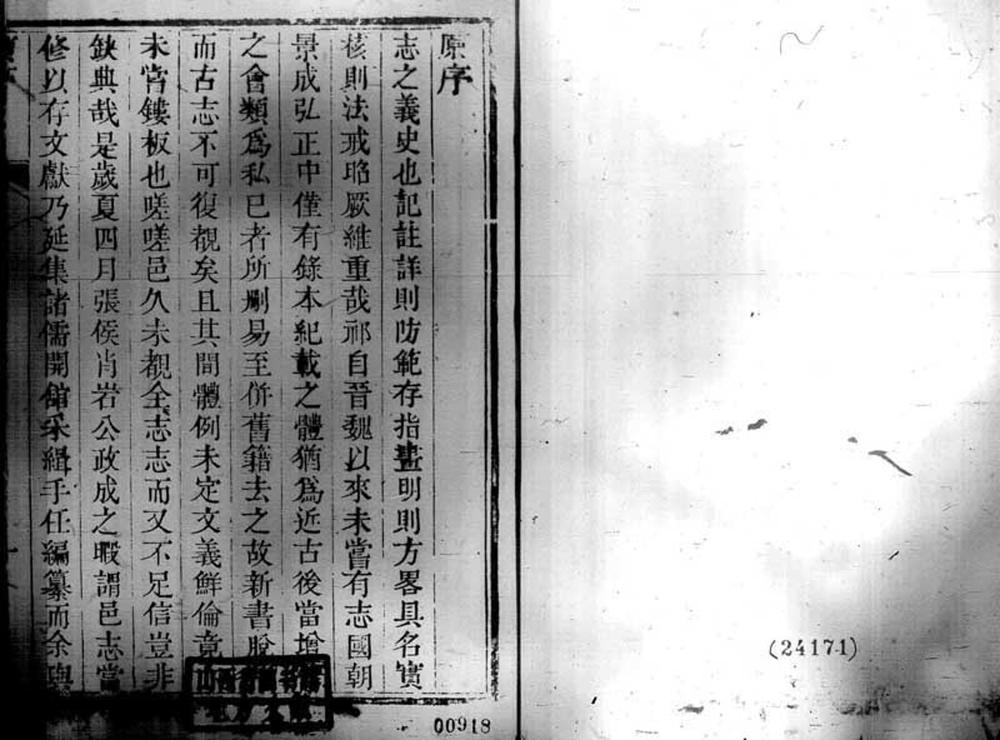 原序
志之義史也記註詳則防範存指畫明則方畧具名實
核則法戒昭厥維重哉祁自晉魏以來未嘗有志國朝
景成弘正中僅有錄本紀載之體猶爲近古後當增
之會類爲私已者所刪易至併舊籍去之故新書脫
而古志不可復覩矣且其間體例未定文義鮮倫竟
未嘗鏤板也嗟嗟邑久未覩全志志而又不足信豈非
缺典哉是歲夏四月張侯肖岩公政成之暇謂邑志當
修以存文獻乃延集諸儒開館采緝手任編纂而余與
00918
(24171)